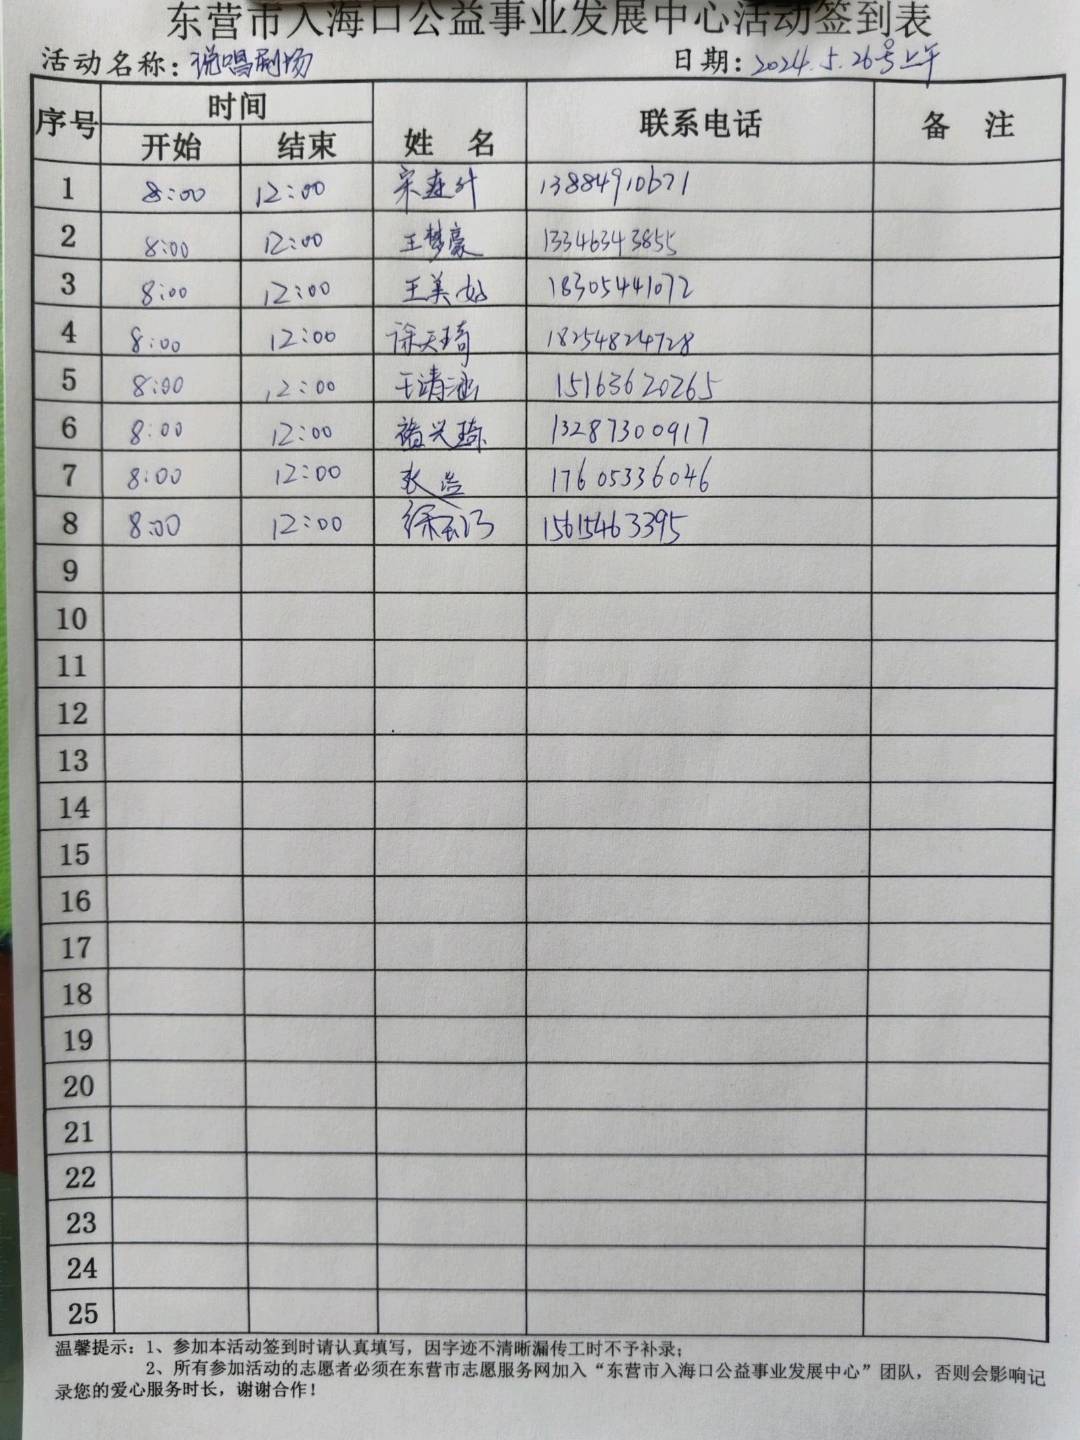 东营市入海口公益事业发展中心活动签到表
活动名称：说唱剧场 日期：2024.5.26号上午
序号 时间 姓 名 联系电话 备 注
开始 结束
1 8:00 12:00 13884910671
2 8:00 12:00 王梦豪 13346343855
3 8:00 12:00 王美 18305441072
4 8:00 12:00 徐天琦 18254824728
5 8:00 12:00 王靖涵 15163620265
6 8:00 12:00 褚兴琦 13287300917
7 8:00 12:00 张浩 17605336046
8 8:00 12:00 徐 15615463395
9
10
11
12
13
14
15
16
17
18
19
20
21
22
23
24
25
温馨提示：1、参加本活动签到时请认真填写，因字迹不清晰漏传工时不予补录；
2、所有参加活动的志愿者必须在东营市志愿服务网加入“东营市入海口公益事业发展中心”团队，否则会影响记
录您的爱心服务时长，谢谢合作！